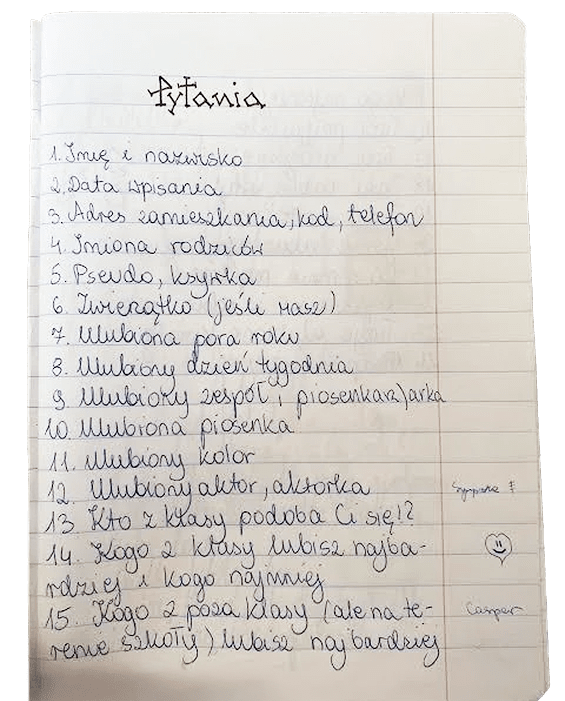 Pytania
1. Imię i nazwisko
2. Data wpisania
3. Adres zamieszkania, kod, telefon
4. Imiona rodziców
5. Pseudo, ksywka
6. Zwierzątko (jeśli masz)
7. Ulubiona pora roku
8. Ulubiony dzień tygodnia
9. Ulubiony zespół i piosenkarz/arka
10. Ulubiona piosenka
11. Ulubiony kolor
12. Ulubiony aktor, aktorka
13. Kto z klasy podoba Ci się!?
14. Kogo z klasy lubisz najba-
rdziej i kogo najmniej
15. Kogo z poza klasy (ale na te-
renie szkoły) lubisz najbardziej
Casper